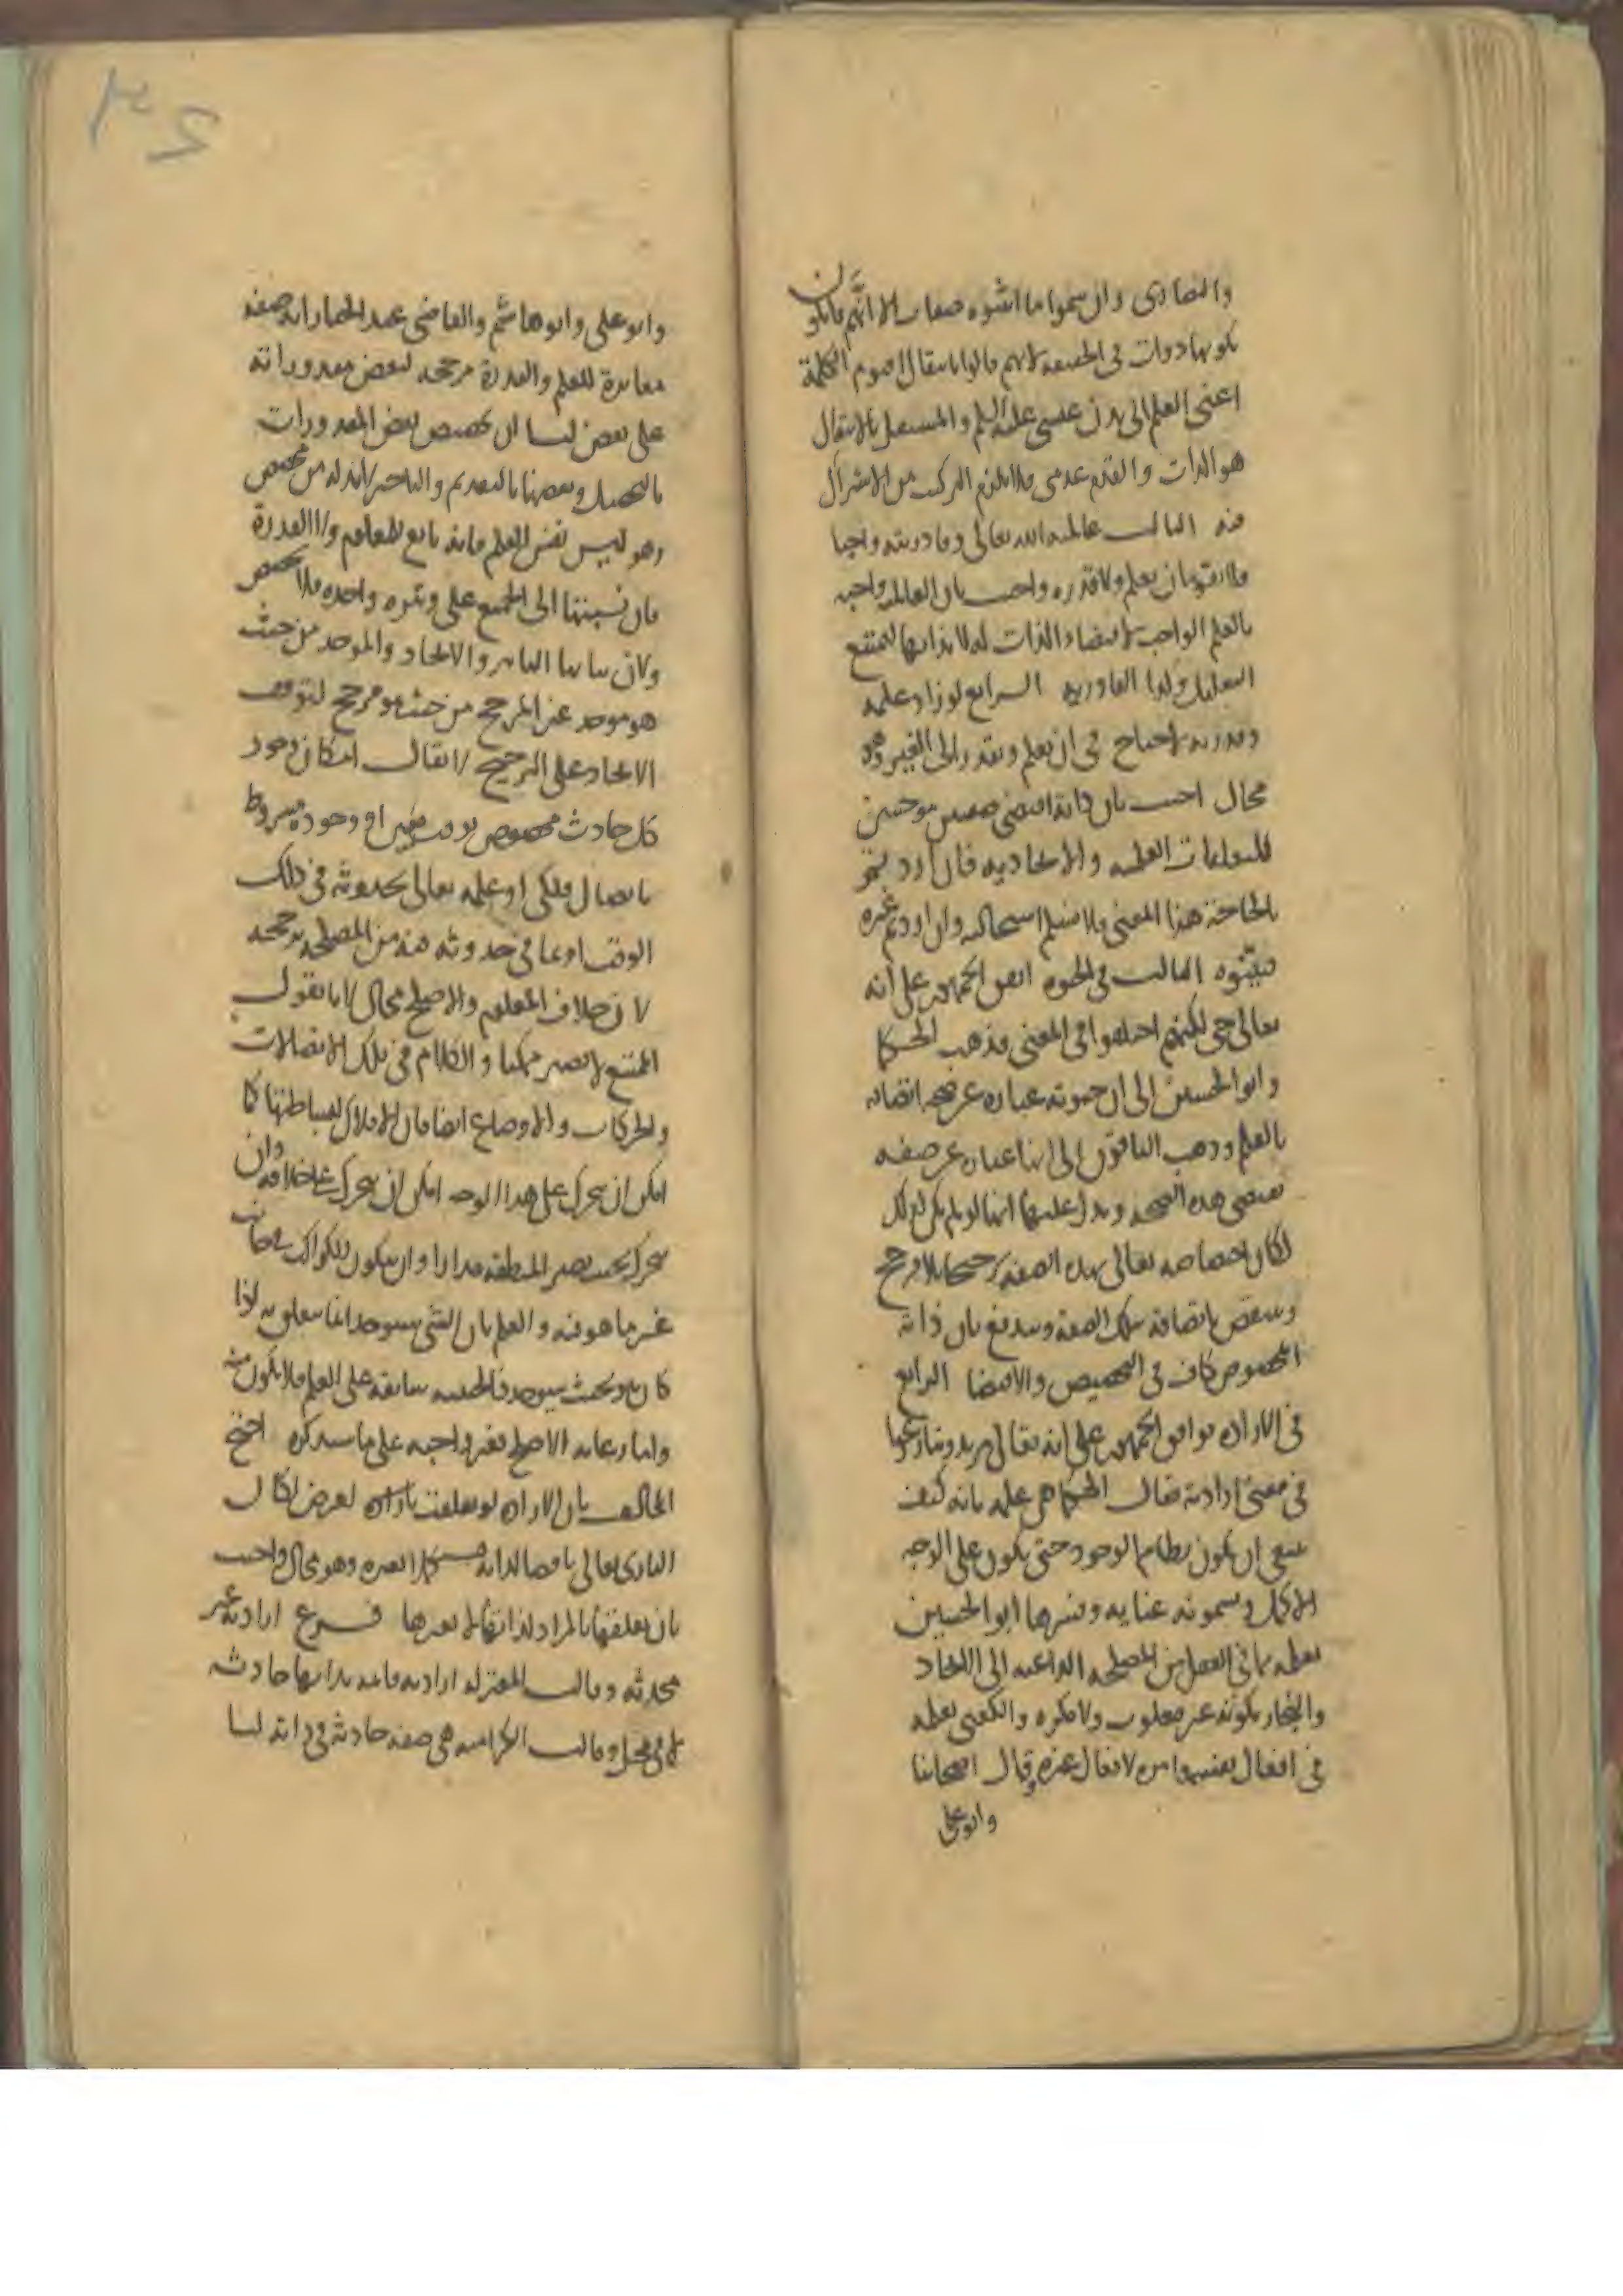 والنصارى وان سموا ما اثبتوه صفات الا انهم قائلون
بكونها ذوات في الحقيقة لانهم قالوا بانتقال اقنوم الكلمة
اعني العلم الى بدن عيسى عليه السلم والمستقل بالانتقال
هو الذات والقدم عدمي فلا يلزم التركيب من الاشتراك
فيه الثالث عالمية الله تعالى وقادريته واجبة
فلا يعللان بعلم ولا قدرة واجيب بان العالمية واجبة
بالعلم الواجب لاقتضاء الذات له لا بذاتها ليمتنع
التعليل وكذا القادرية الرابع لو زاد علمه
وقدرته لاحتاج في ان يعلم ويقدر الى الغير وهو
محال اجيب بان ذاته اقتضى صفتين موجبتين
للتعلقات العلمية والايجادية فان اردتم
بالحاجة هذا المعنى فلا نسلم استحالته وان اردتم غيره
فبينوه الثالث في الحيوة اتفق الجمهور على انه
تعالى حي لكنهم اختلفوا في المعنى فذهب الحكما
وابو الحسين الى ان حيوته عبارة عن صحة اتصافه
بالعلم وذهب الباقون الى انها عبارة عن صفة
تقتضي هذه الصحة ويدل عليها انها لو لم يكن كذلك
لكان اختصاصه تعالى بهذه الصفة ترجيحا بلا مرجح
وينتقض باتصافه بتلك الصفة ويندفع بان ذاته
المخصوص كاف في التخصيص والاقتضا الرابع
في الارادة توافق الجمهور على انه تعالى مريد وتنازعوا
في معنى ارادته فقال الحكما هي علمه بانه كيف
ينبغي ان يكون نظام الوجود حتى يكون على الوجه
الاكمل ويسمونه عناية وفسرها ابو الحسين
بعلمه بما في الفعل من المصلحة الداعية الى الايجاد
والنجار بكونه غير مغلوب ولا مكره والكعبي بعلمه
في افعال نفسه وامره لافعال غيره وقال اصحابنا
وابو علي
وابو علي وابو هاشم والقاضي عبد الجبار انه صفة
مغايرة للعلم والقدرة مرجحة لبعض مقدوراته
على بعض لنا ان تخصيص بعض المقدورات
بالتحصيل وبعضها بالتقديم والتاخير لابد له من مخصص
وهو ليس نفس العلم فانه تابع للمعلوم ولا القدرة
فان نسبتها الى الجميع على وتيرة واحدة فلا تخصص
ولان شانها التاثير والايجاد والموجد من حيث
هو موجد غير المرجح من حيث هو مرجح لتوقف
الايجاد على الترجيح لا يقال امكان وجود
كل حادث مخصوص بوقت معين او وجوده مشروط
باتصال فلكي او علمه تعالى بحدوثه في ذلك
الوقت او بما في حدوثه فيه من المصلحة يرجحه
لان خلاف المعلوم والاصلح محال لانا نقول
الممتنع لا يصير ممكنا والكلام في تلك الاتصالات
والحركات والاوضاع ايضا فان الافلاك لبساطتها كما
امكن ان يتحرك على هذا الوجه امكن ان يتحرك على خلافه وان
يتحرك بحيث تصير المنطقة مدارا وان يكون للكواكب في جانب
غير ما هو فيه والعلم بان الشي سيوجد انما يتعلق به اذا
كان هو بحيث سيوجد فالحيثية سابقة على العلم فلا يكون منه
واما رعاية الاصلح فغير واجبة على ما سنذكره احتج
المخالف بان الارادة لو تعلقت لغرض لكان
الباري تعالى ناقصا لذاته مستكملا بغيره وهو محال واجيب
بان تعلقها بالمراد لذاتها لا لغيرها فرع ارادته غير
محدثة وقالت المعتزلة ارادته قائمة بذاتها حادثة
لا في محل وقالت الكرامية هي صفة حادثة في ذاته لنا